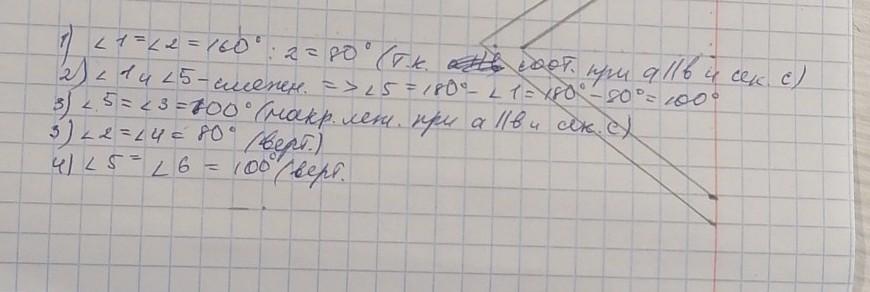 1) ∠1=∠2=160°:2=80° (т.к. соот. при a||b и сек. c)
2) ∠1 и ∠5-смежн. => ∠5=180°-∠1=180°-80°=100°
3) ∠5=∠3=100° (накр. леж. при a||b и сек. c)
3) ∠2=∠4=80° (верт.)
4) ∠5=∠6=100° (верт.